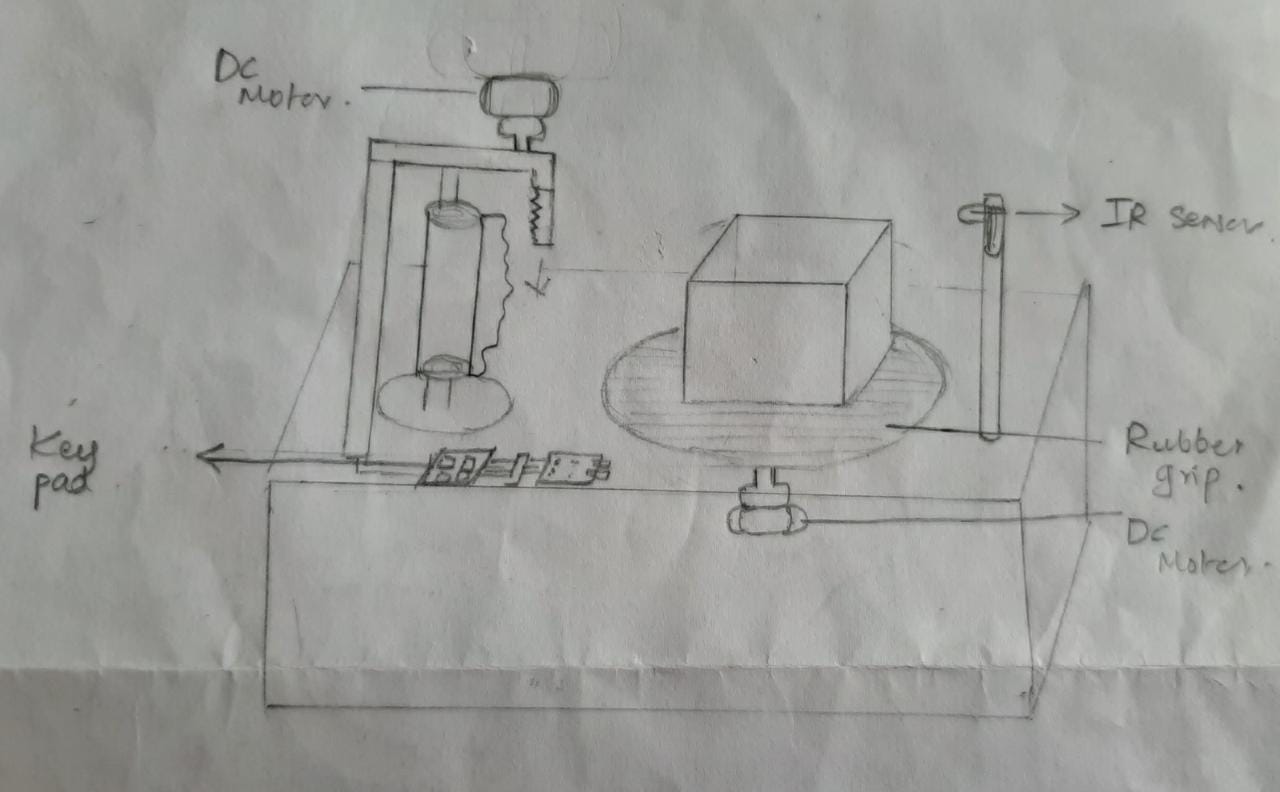 DC
Motor.
IR sensor
Key
pad
Rubber
grip.
DC
Motor.